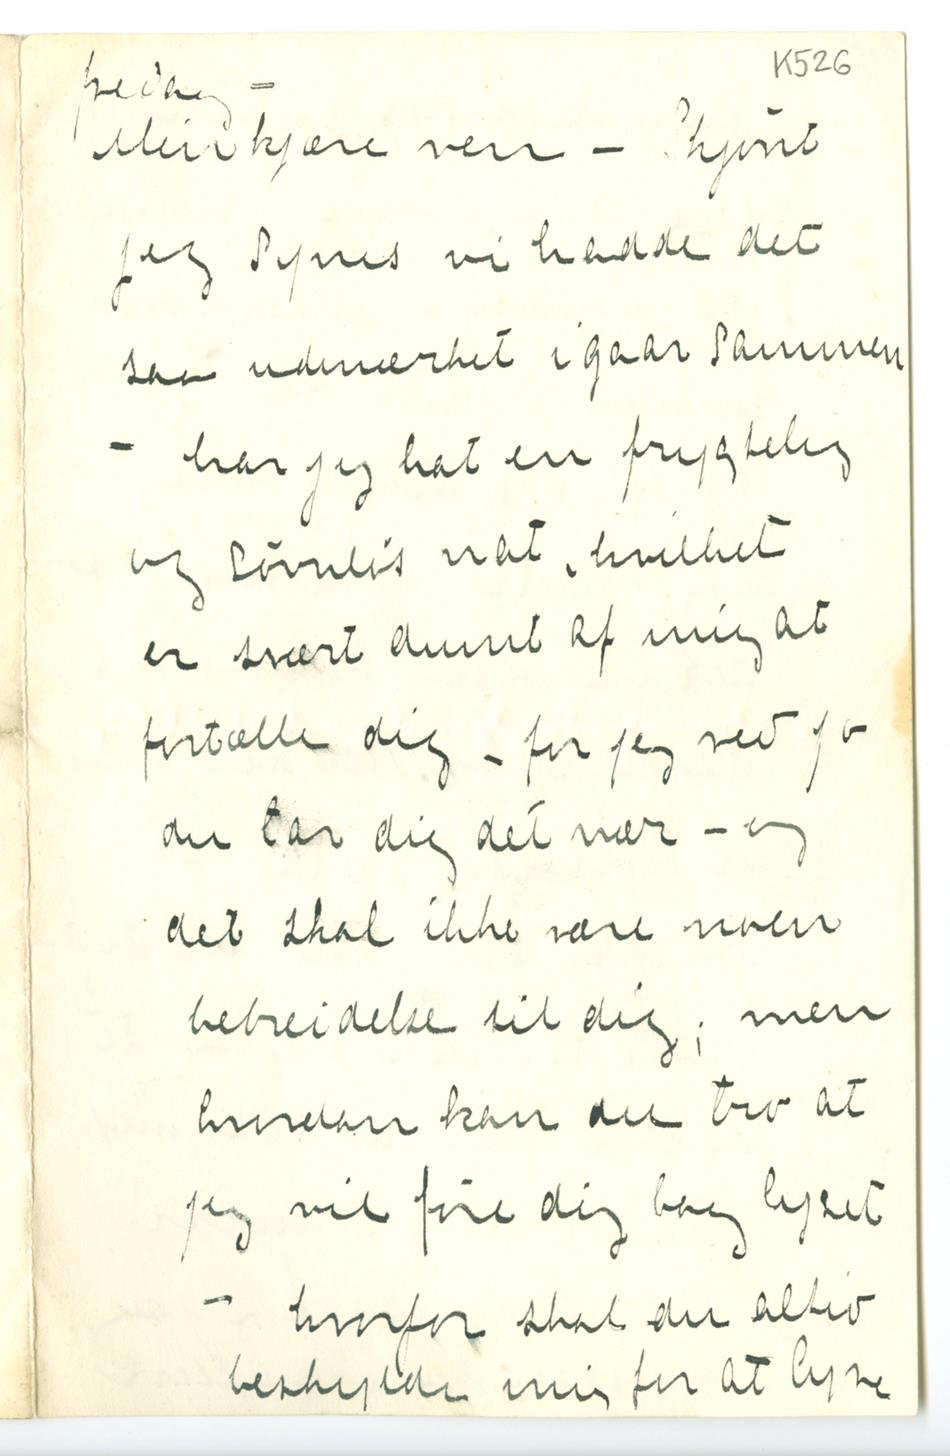 K526
fredag –
Min kjære ven – Skjønt
jeg synes vi hadde det
saa udmærket igaar sammen
– har jeg hat en frygtelig
og søvnløs nat, hvilket
er svært dumt af mig at
fortælle dig – for jeg ved jo
du tar dig det nær – og
det skal ikke være noen
bebreidelse til dig; men
hvordan kan du tro at
jeg vil føre dig bag lyset
– hvorfor skal du altid
beskylde mig for at lyve